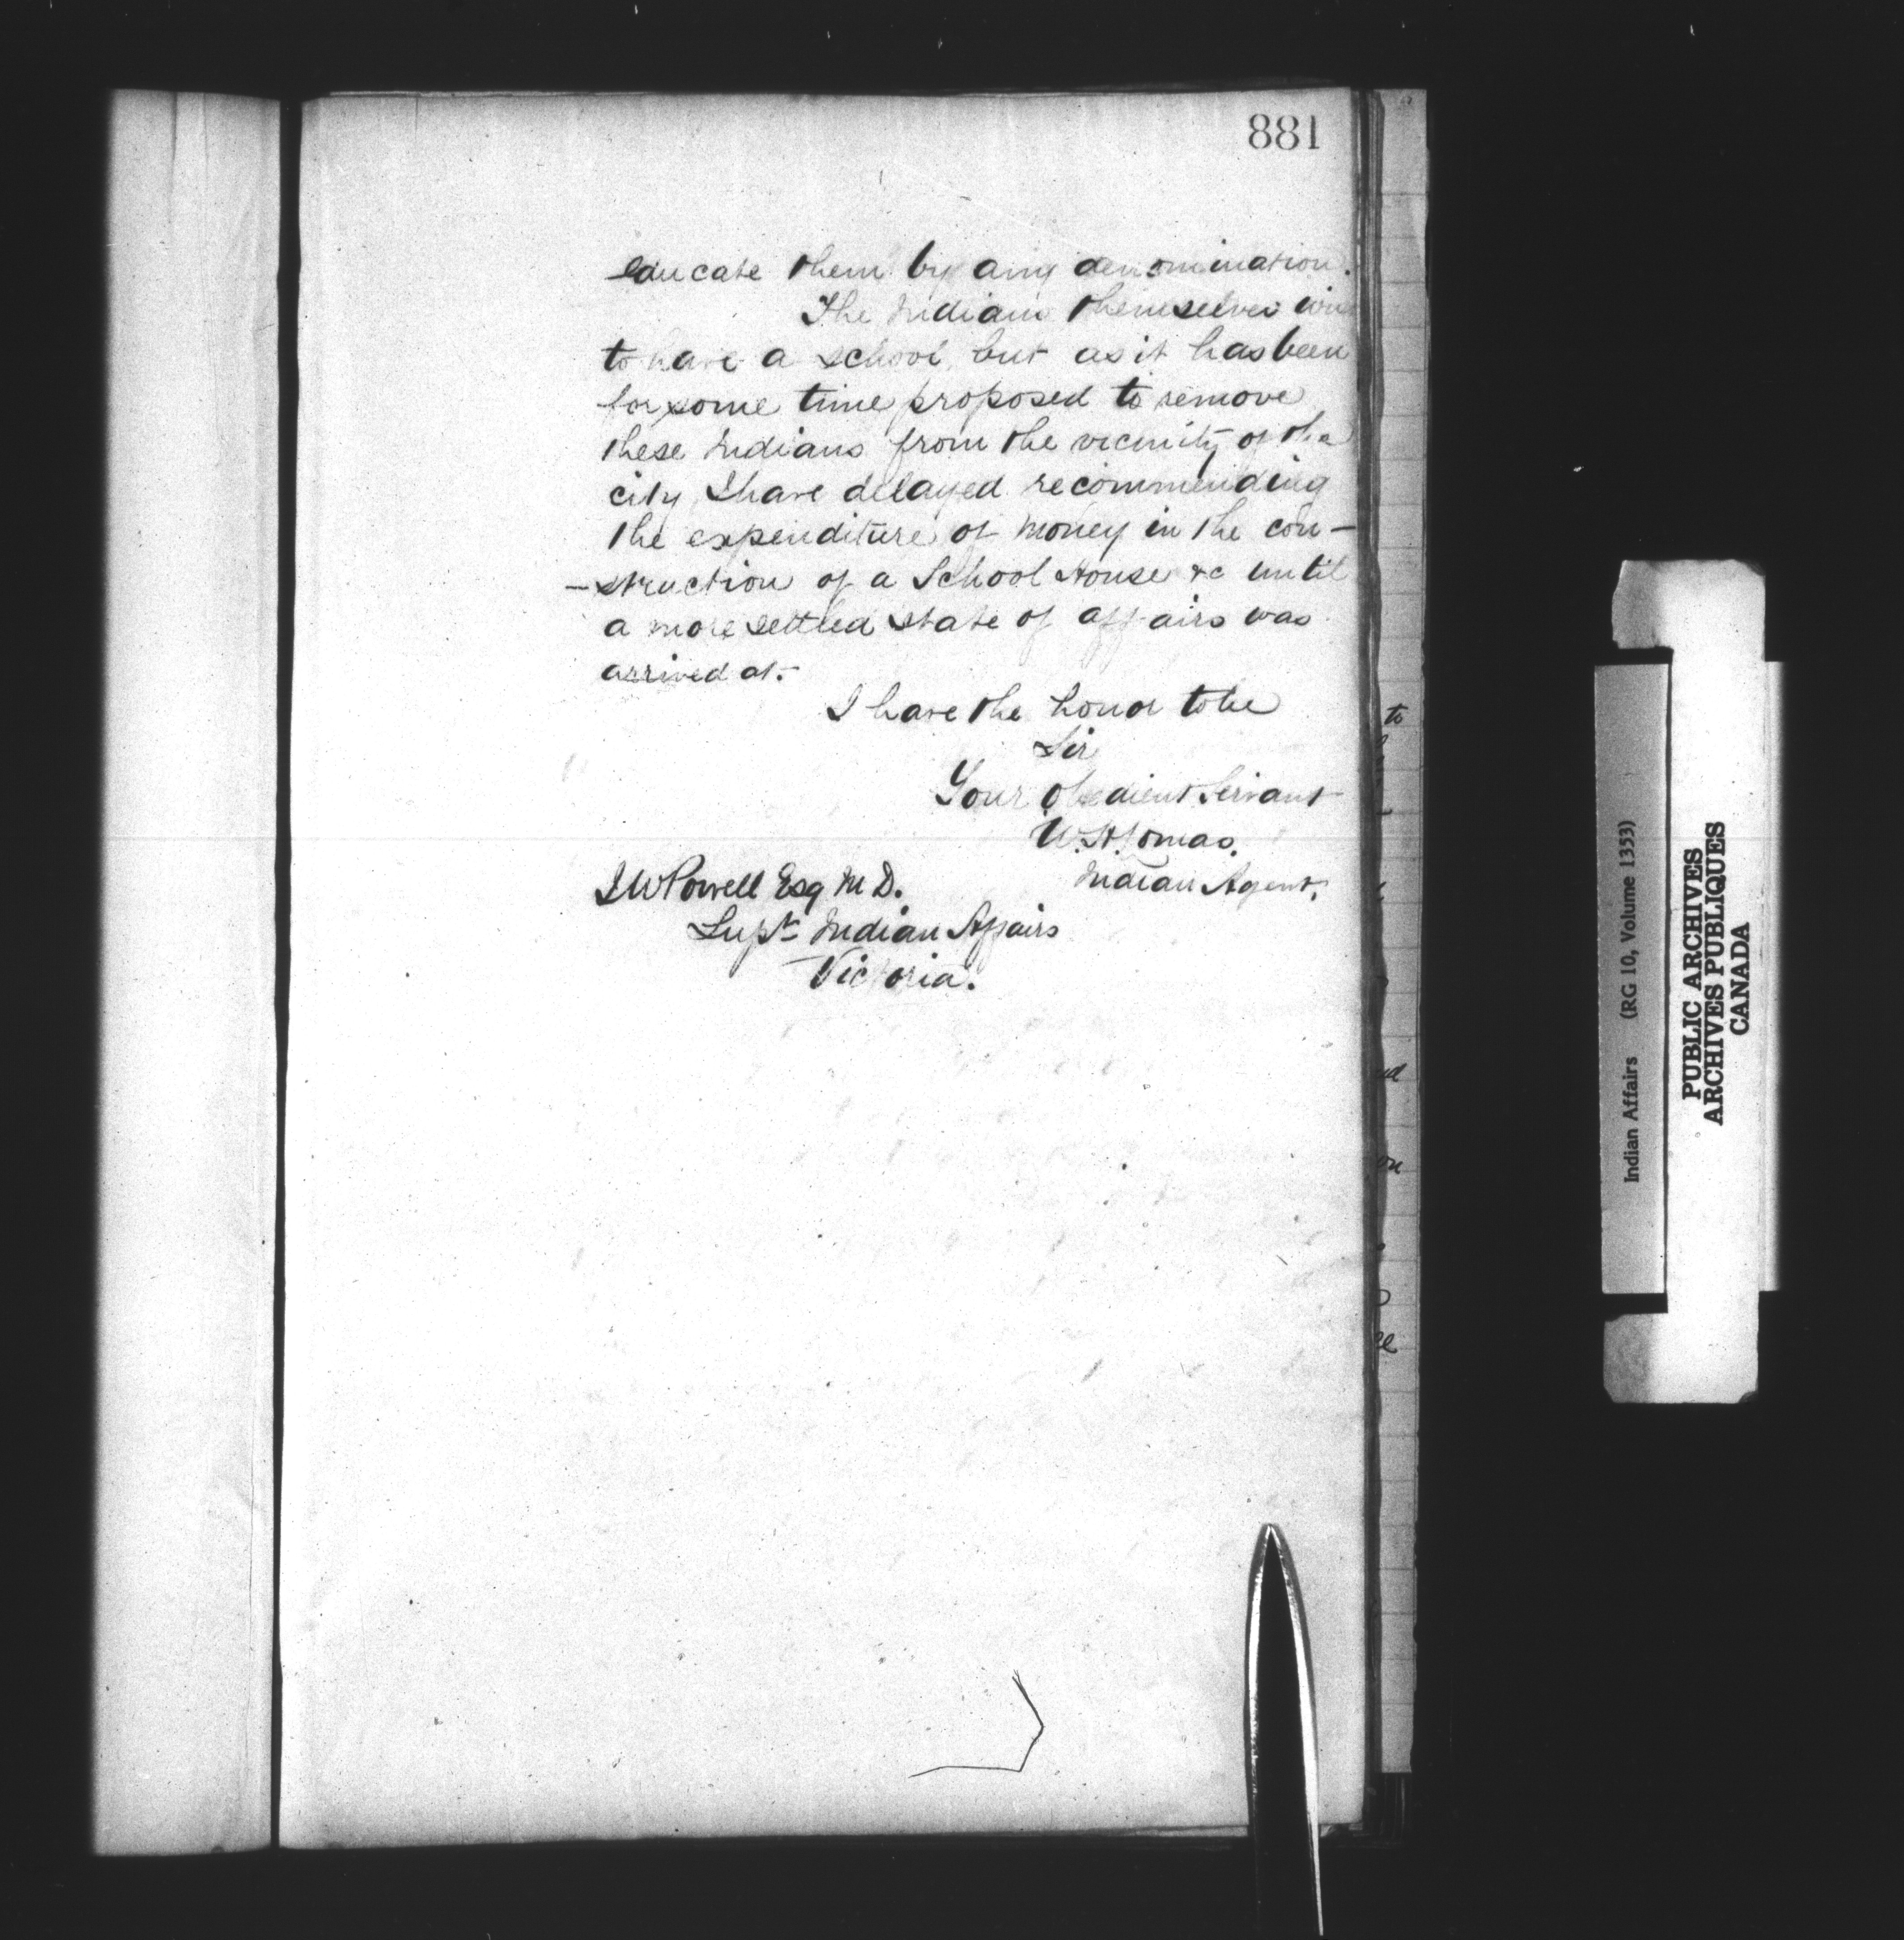 881
educate them by any denomination.
The Indians themselves wi
to have a school, but as it has been
for some time proposed to remove
these Indians from the vicinity of the
city, I have delayed recommending
the expenditure of money in the con-
-struction of a School House &c until
a more settled state of affairs was
arrived at.-
I have the honor to be
Sir
Your Obedient Servant
W. H. Lomas.
Indian Agent.
I W Powell Esq M D.
Supt Indian Affairs
Victoria.
to
ed
on
Indian Affairs (RG 10, Volume 1353)
PUBLIC ARCHIVES
ARCHIVES PUBLIQUES
CANADA